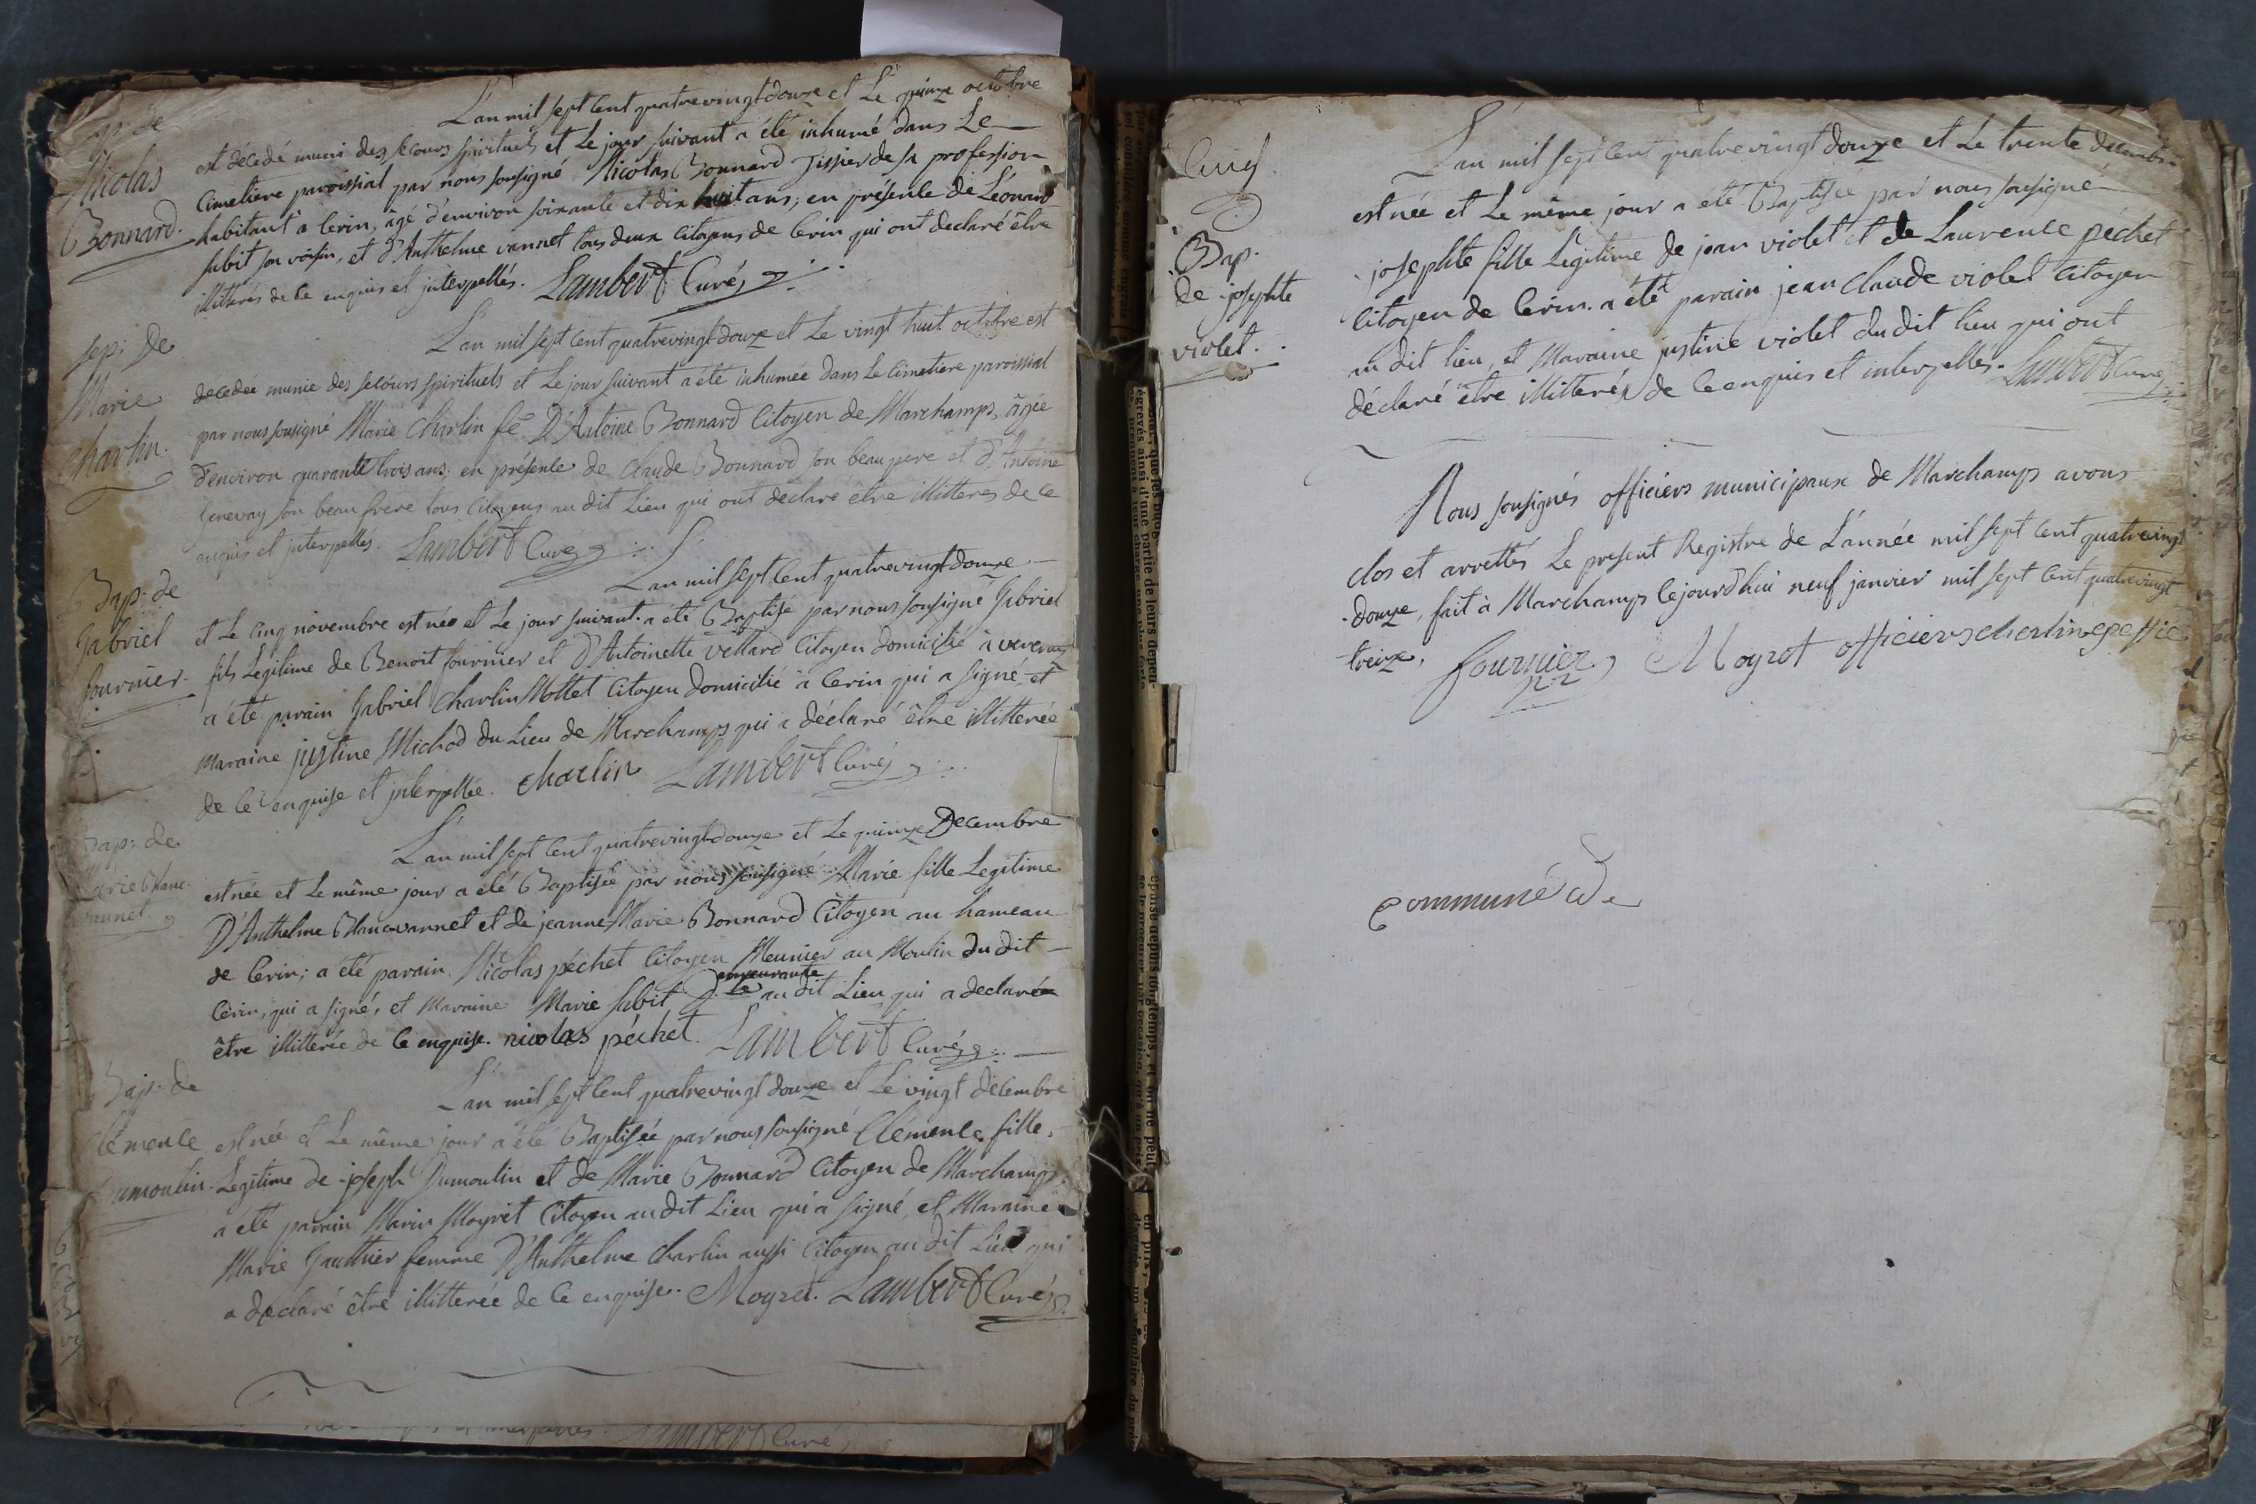 Sep: de
Nicolas
Bonnard.
L'an mil sept cent quatrevingt douze et Le quinze octobre
est décedé muni des secours spirituels et Le jour suivant a été inhumé dans Le
Cimetiere paroissial par nous sousigné Nicolas Bonnard Tissier de sa profession
habitant a Cerin, âgé d'environ soixante et dix huit ans; en présence de Léonard
subit son voisin, et d'Anthelme vannet tous deux Citoyens de Cerin qui ont declaré être
illitterés de ce enquis et interpellés. Lambert Curé
Sep: De
Marie
Charlin.
L'an mil sept cent quatrevingt douze et Le vingt huit octobre est
decedée munie des secours spirituels et Le jour suivant a été inhumée dans Le Cimetiere paroissial
par nous sousigné Marie Charlin fe D'Antoine Bonnard Citoyen de Marchamps, âgée
d'environ quarante trois ans. en présence de Claude Bonnard son beaupere et d'Antoine
Genevay son beau frere tous Citoyens au dit Lieu qui ont declaré être illitterés de ce
enquis et interpellés. Lambert Curé
Bap: de
Gabriel
fournier.
L'an mil sept cent quatrevingt douze
et Le cinq novembre est née et Le jour suivant a été Baptisé par nous sousigné Gabriel
fils Legitime de Benoit fournier et D'Antoinette vettard Citoyen domicilié à
a été parain Gabriel Charlin Mollet Citoyen domicilié à Cerin qui a signé, et
maraine justine Michod du Lieu de Marchamps qui a déclaré être illitterée
de ce enquise et interpellée. charlin Lambert Curé
Bap: de
Marie Blanc
vannet.
L'an mil sept cent quatrevingt douze et Le quinze Decembre
est née et Le même jour a été Baptisée par nous sousigné Marie fille Legitime
D'Anthelme Blanc vannet et de jeanne Marie Bonnard Citoyen au hameau
de Cerin; a été parain Nicolas péchet Citoyen Meunier au Moulin du dit
Cerin, qui a signé, et Maraine Marie subit Demeurante au dit Lieu qui a declaré
être illitterée de ce enquise. nicolas péchet. Lambert Curé
Bap: de
Clémence
Dumoulin.
L'an mil sept cent quatrevingt douze et Le vingt décembre
est née et Le même jour a été Baptisée par nous sousigné Clémence fille
Legitime de joseph Dumoulin et de Marie Bonnard Citoyen de Marchamps.
a été parain Marin Moyret Citoyen au dit Lieu qui a signé, et Maraine
Marie Gauthier femme D'Anthelme Charlin aussi Citoyen au dit Lieu qui
a déclaré être illitterée de ce enquise. Moyret. Lambert Curé
Cinq.
Bap.
de josephte
violet.
L'an mil sept cent quatrevingt douze et Le trente décembre
est née et Le même jour a été Baptisée par nous sousigné
josephte fille Légitime de jean violet et de Laurence péchet
Citoyen de Cerin. a été parain jean Claude violet Citoyen
au dit lieu, et Maraine justine violet du dit lieu qui ont
déclaré être illitterés de ce enquis et interpellés. Lambert Curé
Nous sousignés officiers municipaux de Marchamps avons
clos et arrettés Le present Registre de L'année mil sept cent quatrevingt
douze, fait à Marchamps cejourd'hui neuf janvier mil sept cent quatrevingt
treize, fournier Moyrot officiers charlin
communé de